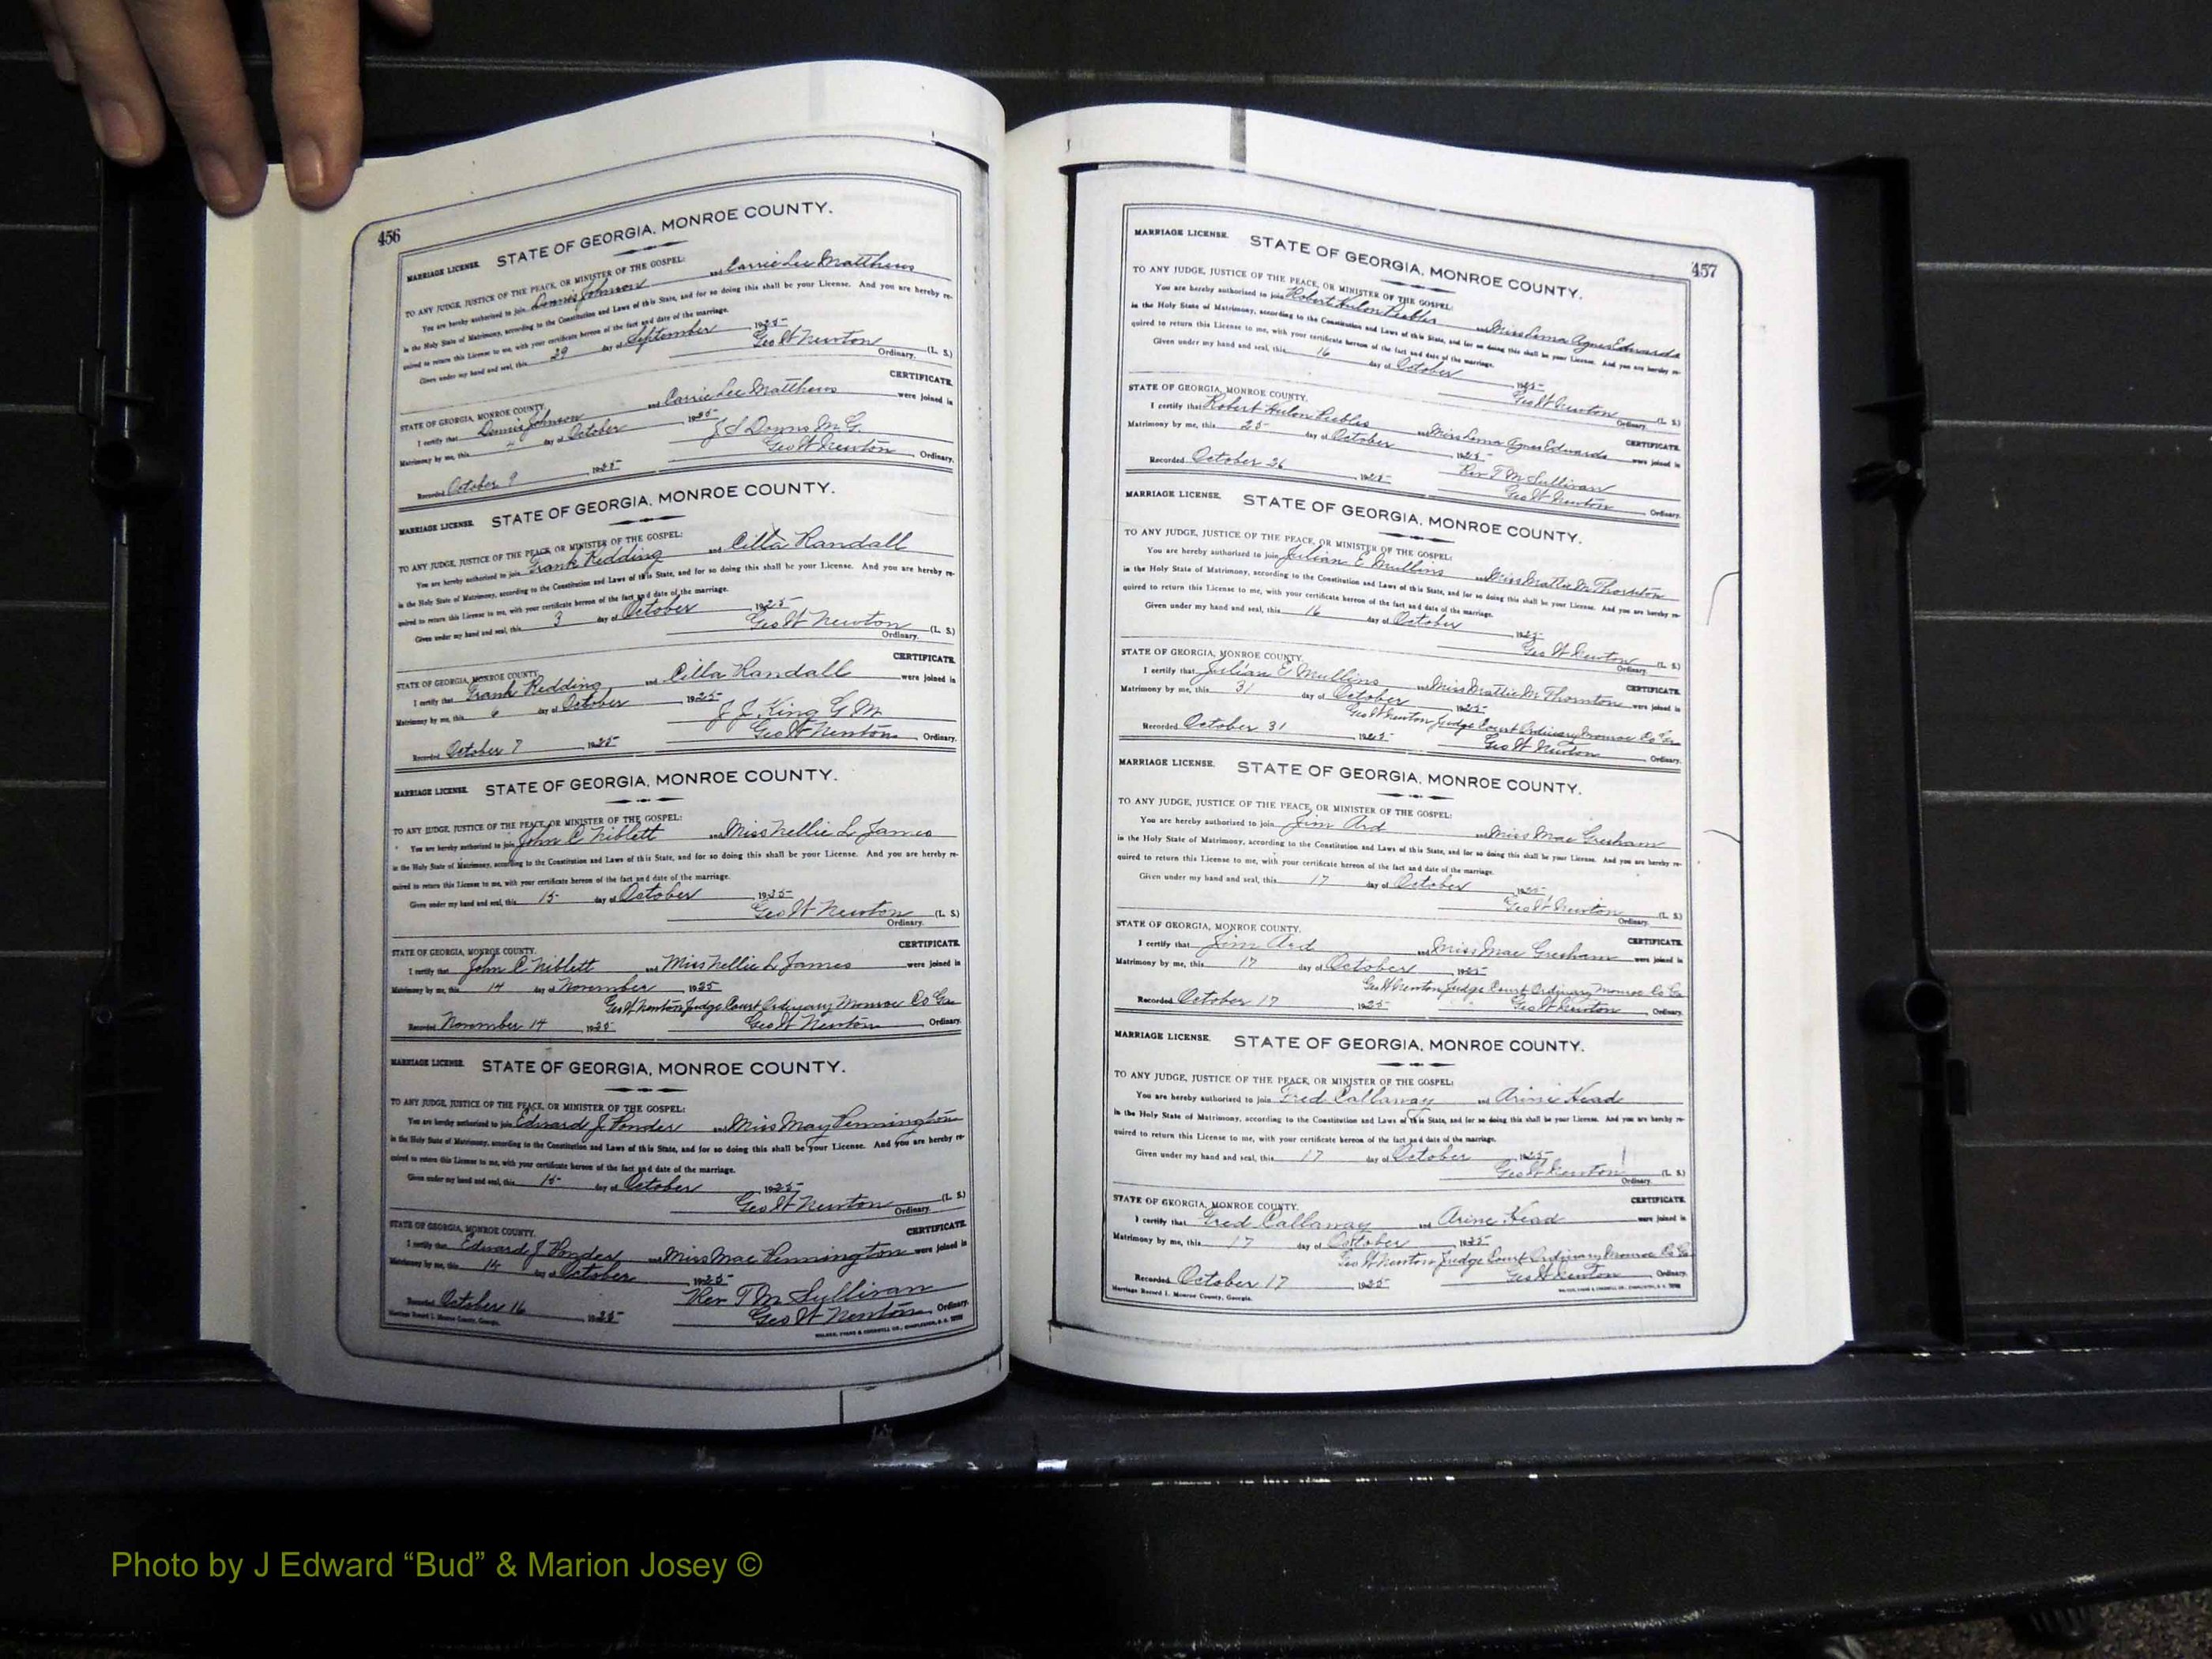 456
MARRIAGE LICENSE. STATE OF GEORGIA, MONROE COUNTY.
TO ANY JUDGE, JUSTICE OF THE PEACE, OR MINISTER OF THE GOSPEL:
You are hereby authorized to join Dennis Johnson and Carrie Lee Matthews
in the Holy State of Matrimony, according to the Constitution and Laws of this State, and for so doing this shall be your License. And you are hereby re-
quired to return this License to me, with your certificate hereon of the fact and date of the marriage.
Given under my hand and seal, this 29 day of September 1925
Geo W Newton (L. S.)
Ordinary.
STATE OF GEORGIA, MONROE COUNTY. CERTIFICATE.
I certify that Dennis Johnson and Carrie Lee Matthews were joined in
Matrimony by me, this 4 day of October 1925
J S Downs M. G.
Recorded October 9 1925 Geo W Newton Ordinary.
MARRIAGE LICENSE. STATE OF GEORGIA, MONROE COUNTY.
TO ANY JUDGE, JUSTICE OF THE PEACE, OR MINISTER OF THE GOSPEL:
You are hereby authorized to join Frank Redding and Cilla Randall
in the Holy State of Matrimony, according to the Constitution and Laws of this State, and for so doing this shall be your License. And you are hereby re-
quired to return this License to me, with your certificate hereon of the fact and date of the marriage.
Given under my hand and seal, this 3 day of October 1925
Geo W Newton (L. S.)
Ordinary.
STATE OF GEORGIA, MONROE COUNTY. CERTIFICATE.
I certify that Frank Redding and Cilla Randall were joined in
Matrimony by me, this 6 day of October 1925
J J King G M
Recorded October 7 1925 Geo W Newton Ordinary.
MARRIAGE LICENSE. STATE OF GEORGIA, MONROE COUNTY.
TO ANY JUDGE, JUSTICE OF THE PEACE, OR MINISTER OF THE GOSPEL:
You are hereby authorized to join John C Niblett and Miss Nellie L James
in the Holy State of Matrimony, according to the Constitution and Laws of this State, and for so doing this shall be your License. And you are hereby re-
quired to return this License to me, with your certificate hereon of the fact and date of the marriage.
Given under my hand and seal, this 15 day of October 1925
Geo W Newton (L. S.)
Ordinary.
STATE OF GEORGIA, MONROE COUNTY. CERTIFICATE.
I certify that John C Niblett and Miss Nellie L James were joined in
Matrimony by me, this 14 day of November 1925
Geo W Newton Judge Court Ordinary Monroe Co Ga
Recorded November 14 1925 Geo W Newton Ordinary.
MARRIAGE LICENSE. STATE OF GEORGIA, MONROE COUNTY.
TO ANY JUDGE, JUSTICE OF THE PEACE, OR MINISTER OF THE GOSPEL:
You are hereby authorized to join Edward J Ponder and Miss May Pennington
in the Holy State of Matrimony, according to the Constitution and Laws of this State, and for so doing this shall be your License. And you are hereby re-
quired to return this License to me, with your certificate hereon of the fact and date of the marriage.
Given under my hand and seal, this 15 day of October 1925
Geo W Newton (L. S.)
Ordinary.
STATE OF GEORGIA, MONROE COUNTY. CERTIFICATE.
I certify that Edward J Ponder and Miss Mae Pennington were joined in
Matrimony by me, this 15 day of October 1925
Rev T M Sullivan
Recorded October 16 1925 Geo W Newton Ordinary.
Marriage Record I. Monroe County, Georgia.
457
MARRIAGE LICENSE. STATE OF GEORGIA, MONROE COUNTY.
TO ANY JUDGE, JUSTICE OF THE PEACE, OR MINISTER OF THE GOSPEL:
You are hereby authorized to join Robert Hulon Peebles and Miss Lema Agnes Edwards
in the Holy State of Matrimony, according to the Constitution and Laws of this State, and for so doing this shall be your License. And you are hereby re-
quired to return this License to me, with your certificate hereon of the fact and date of the marriage.
Given under my hand and seal, this 16 day of October 1925
Geo W Newton (L. S.)
Ordinary.
STATE OF GEORGIA, MONROE COUNTY. CERTIFICATE.
I certify that Robert Hulon Peebles and Miss Lema Agnes Edwards were joined in
Matrimony by me, this 25 day of October 1925
Rev T M Sullivan
Recorded October 26 1925 Geo W Newton Ordinary.
MARRIAGE LICENSE. STATE OF GEORGIA, MONROE COUNTY.
TO ANY JUDGE, JUSTICE OF THE PEACE, OR MINISTER OF THE GOSPEL:
You are hereby authorized to join Julian E Mullins and Miss Mattie M Thornton
in the Holy State of Matrimony, according to the Constitution and Laws of this State, and for so doing this shall be your License. And you are hereby re-
quired to return this License to me, with your certificate hereon of the fact and date of the marriage.
Given under my hand and seal, this 16 day of October 1925
Geo W Newton (L. S.)
Ordinary.
STATE OF GEORGIA, MONROE COUNTY. CERTIFICATE.
I certify that Julian E Mullins and Miss Mattie M Thornton were joined in
Matrimony by me, this 31 day of October 1925
Geo W Newton Judge Court Ordinary Monroe Co Ga
Recorded October 31 1925 Geo W Newton Ordinary.
MARRIAGE LICENSE. STATE OF GEORGIA, MONROE COUNTY.
TO ANY JUDGE, JUSTICE OF THE PEACE, OR MINISTER OF THE GOSPEL:
You are hereby authorized to join Jim Ard and Miss Mae Gresham
in the Holy State of Matrimony, according to the Constitution and Laws of this State, and for so doing this shall be your License. And you are hereby re-
quired to return this License to me, with your certificate hereon of the fact and date of the marriage.
Given under my hand and seal, this 17 day of October 1925
Geo W Newton (L. S.)
Ordinary.
STATE OF GEORGIA, MONROE COUNTY. CERTIFICATE.
I certify that Jim Ard and Miss Mae Gresham were joined in
Matrimony by me, this 17 day of October 1925
Geo W Newton Judge Court Ordinary Monroe Co Ga
Recorded October 17 1925 Geo W Newton Ordinary.
MARRIAGE LICENSE. STATE OF GEORGIA, MONROE COUNTY.
TO ANY JUDGE, JUSTICE OF THE PEACE, OR MINISTER OF THE GOSPEL:
You are hereby authorized to join Fred Callaway and Arine Head
in the Holy State of Matrimony, according to the Constitution and Laws of this State, and for so doing this shall be your License. And you are hereby re-
quired to return this License to me, with your certificate hereon of the fact and date of the marriage.
Given under my hand and seal, this 17 day of October 1925
Geo W Newton (L. S.)
Ordinary.
STATE OF GEORGIA, MONROE COUNTY. CERTIFICATE.
I certify that Fred Callaway and Arine Head were joined in
Matrimony by me, this 17 day of October 1925
Geo W Newton Judge Court Ordinary Monroe Co Ga
Recorded October 17 1925 Geo W Newton Ordinary.
Marriage Record I. Monroe County, Georgia.
Photo by J Edward “Bud” & Marion Josey ©